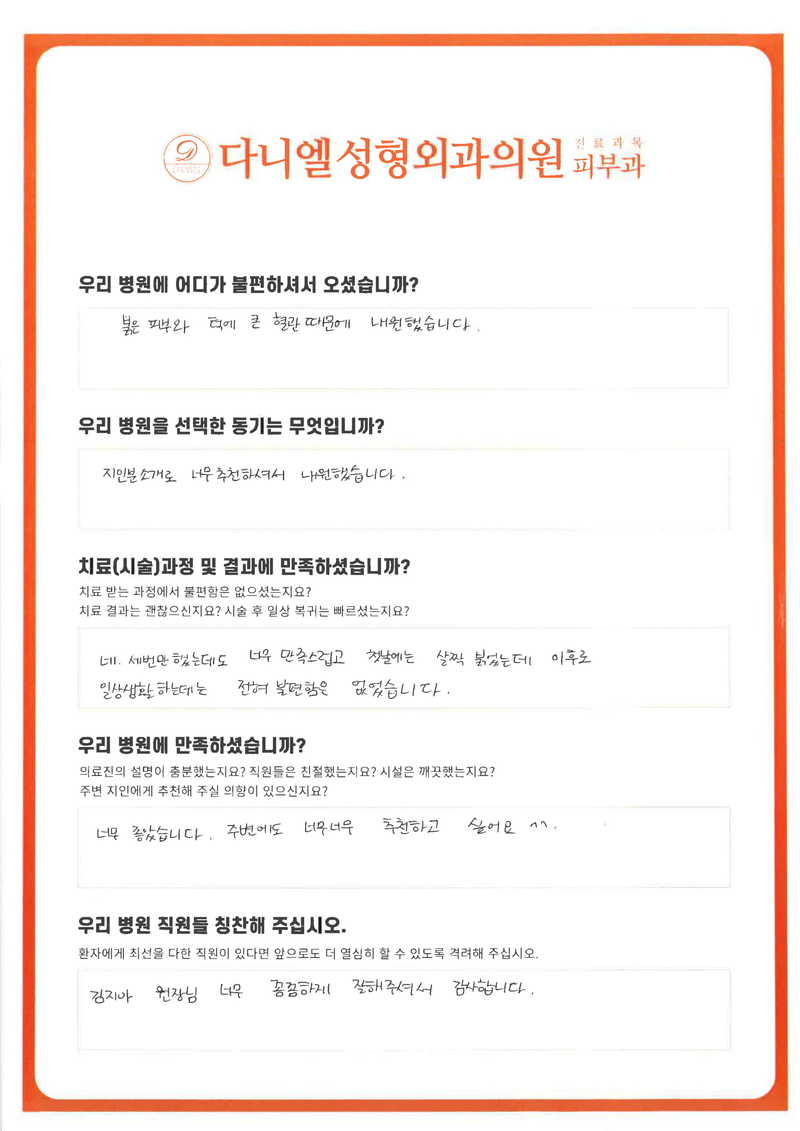 다니엘성형외과의원
진료과목
피부과
우리 병원에 어디가 불편하셔서 오셨습니까?
붉은 피부와 턱에 큰 혈관 때문에 내원했습니다.
우리 병원을 선택한 동기는 무엇입니까?
지인분소개로 너무추천하셔서 내원했습니다.
치료(시술)과정 및 결과에 만족하셨습니까?
치료 받는 과정에서 불편함은 없으셨는지요?
치료 결과는 괜찮으신지요? 시술 후 일상 복귀는 빠르셨는지요?
네. 세번만 했는데도 너무 만족스럽고 첫날에는 살짝 붉었는데 이후로
일상생활하는데는 전혀 불편함은 없었습니다.
우리 병원에 만족하셨습니까?
의료진의 설명이 충분했는지요? 직원들은 친절했는지요? 시설은 깨끗했는지요?
주변 지인에게 추천해 주실 의향이 있으신지요?
너무 좋았습니다. 주변에도 너무너무 추천하고 싶어요 ^^.
우리 병원 직원들 칭찬해 주십시오.
환자에게 최선을 다한 직원이 있다면 앞으로도 더 열심히 할 수 있도록 격려해 주십시오.
김지아 원장님 너무 꼼꼼하게 잘해주셔서 감사합니다.